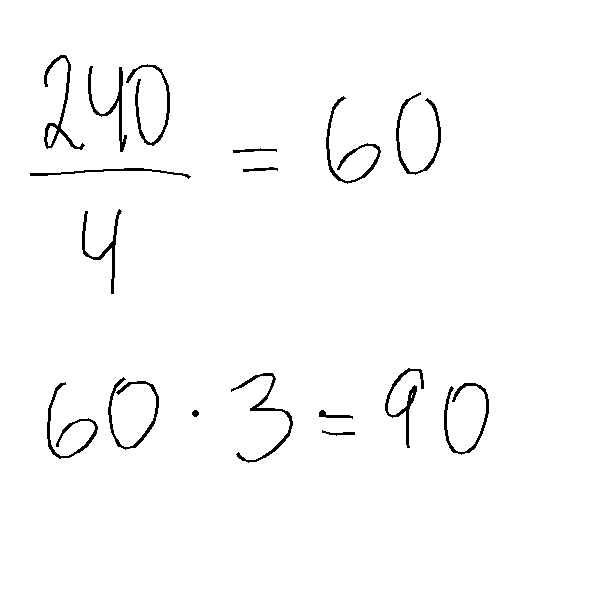 240/4 = 60
60 · 3 = 90